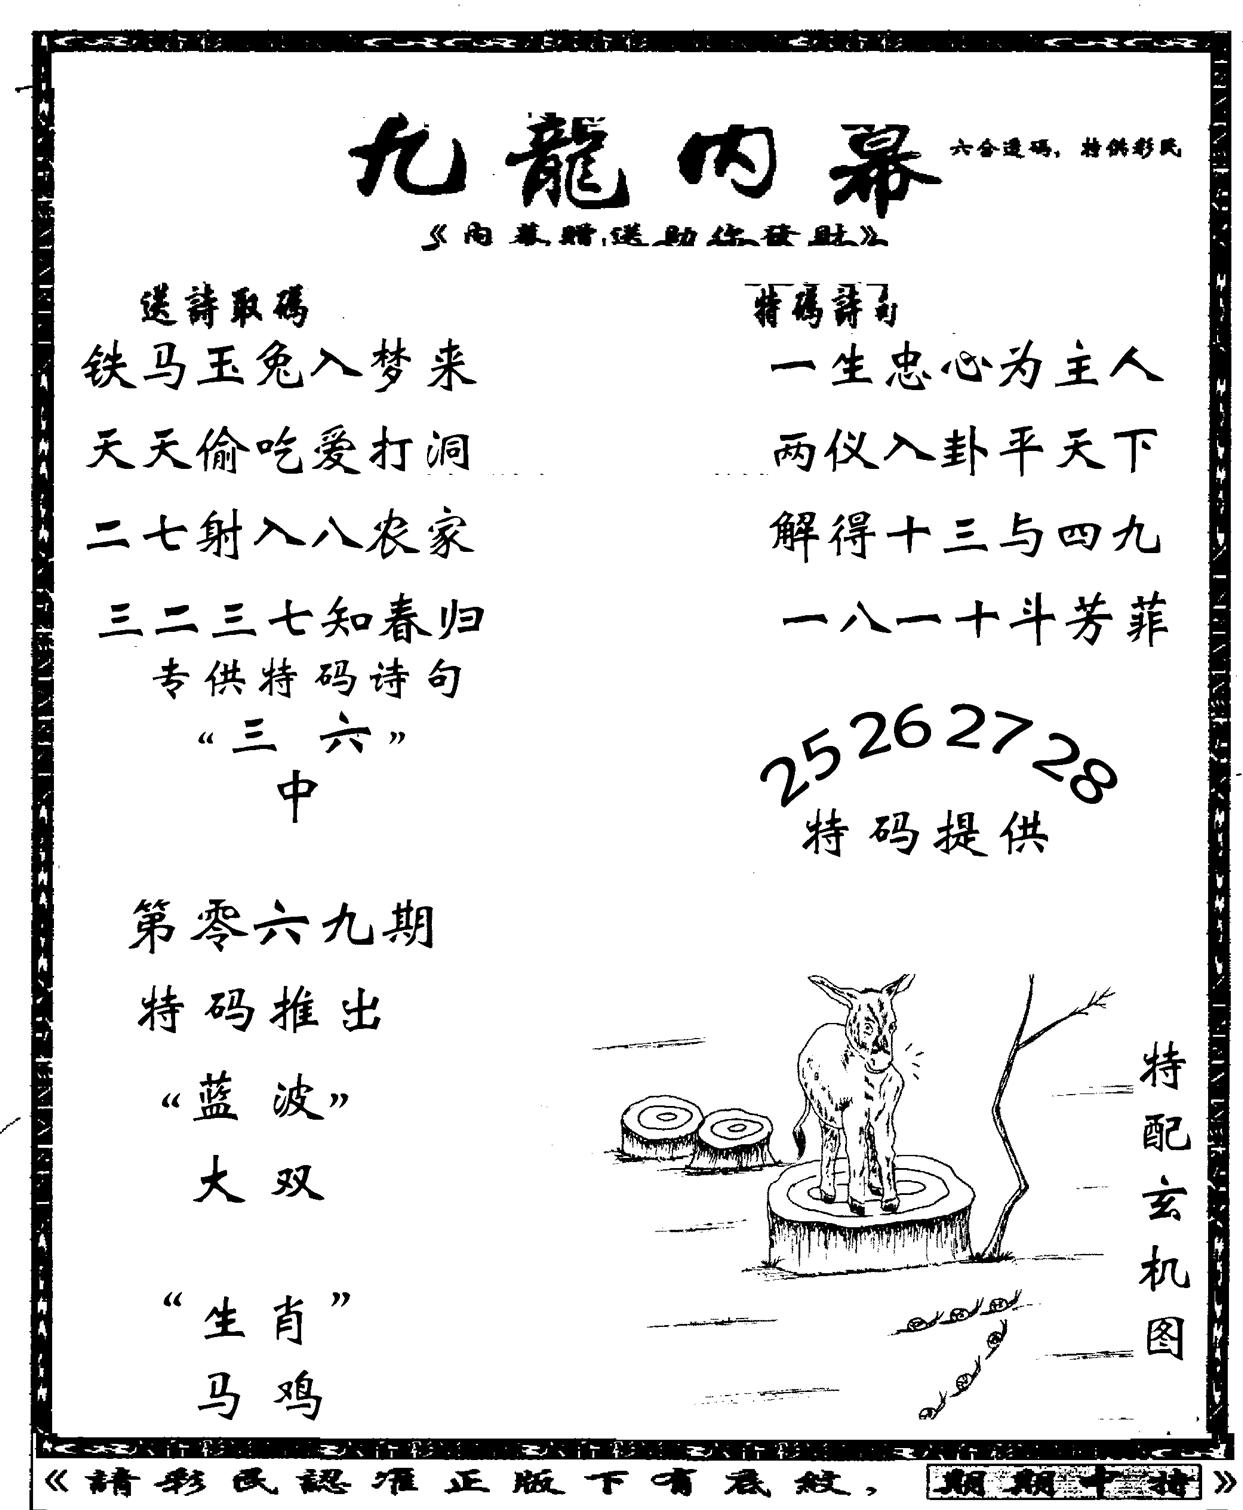 九龍内幕
六合透码，特供彩民
《内幕赠送助你發财》
送詩取碼
铁马玉兔入梦来
天天偷吃爱打洞
二七射入八农家
三二三七知春归
专供特码诗句
“三六”
中
第零六九期
特码推出
“蓝波”
大双
“生肖”
马鸡
特碼詩句
一生忠心为主人
两仪入卦平天下
解得十三与四九
一八一十斗芳菲
25 26 27 28
特码提供
特配玄机图
《請彩民認准正版下有底紋，期期中特》